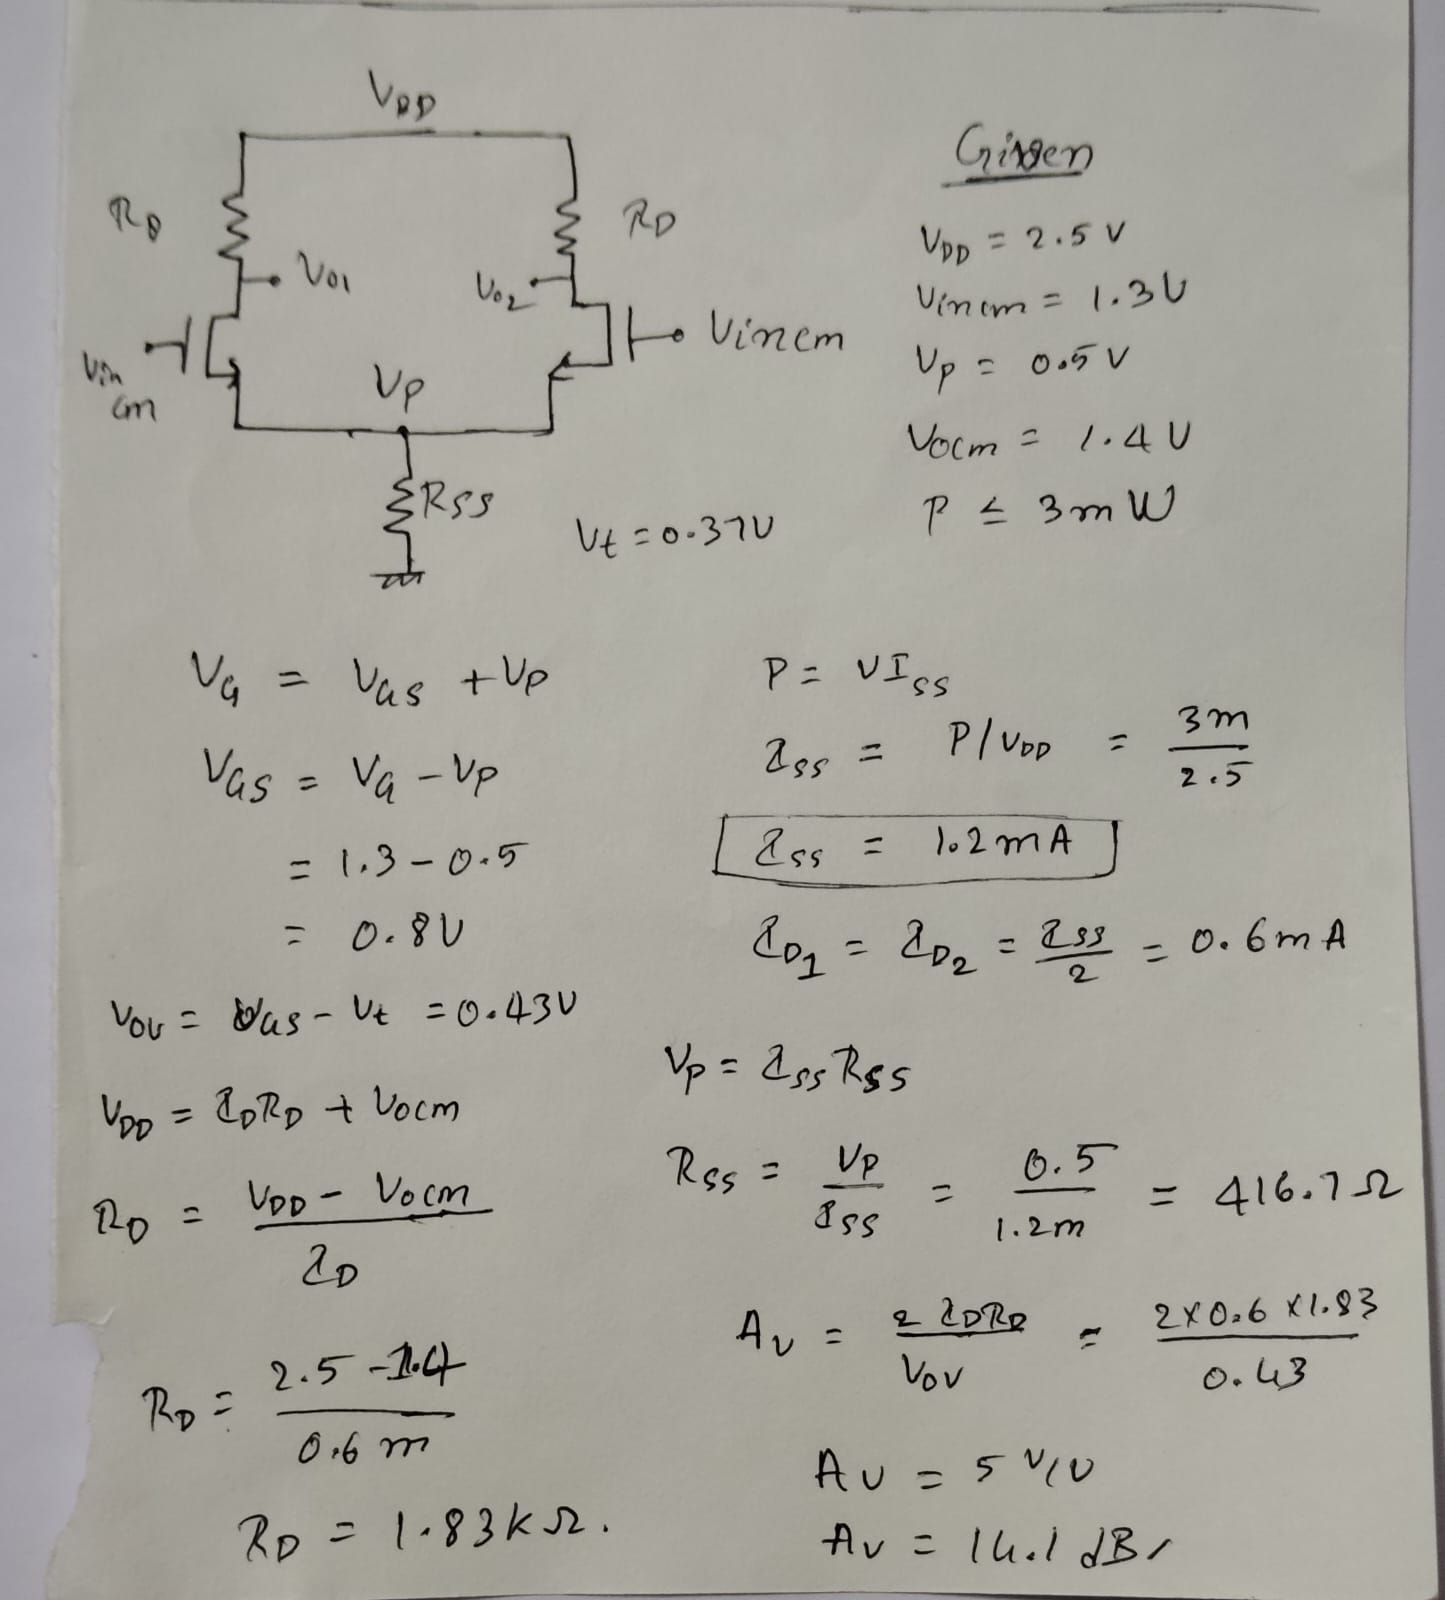 VDD
RD
RD
Vo1
Vo2
Vin cm
Vincm
VP
RSS
Vt = 0.37V
Given
VDD = 2.5 V
Vincm = 1.3V
Vp = 0.5 V
Vocm = 1.4 V
P ≤ 3mW
VG = VGS + VP
VGS = VG - VP
= 1.3 - 0.5
= 0.8V
Vov = VGS - Vt = 0.43V
VDD = IDRD + Vocm
RD = VDD - Vocm / ID
RD = 2.5 - 1.4 / 0.6 m
RD = 1.83kΩ.
P = VISS
ISS = P/VDD = 3m / 2.5
ISS = 1.2mA
ID1 = ID2 = ISS / 2 = 0.6mA
Vp = ISS RSS
RSS = VP / ISS = 0.5 / 1.2m = 416.7Ω
Av = 2 IDRD / Vov = 2×0.6×1.83 / 0.43
Av = 5 V/V
Av = 14.1 dB